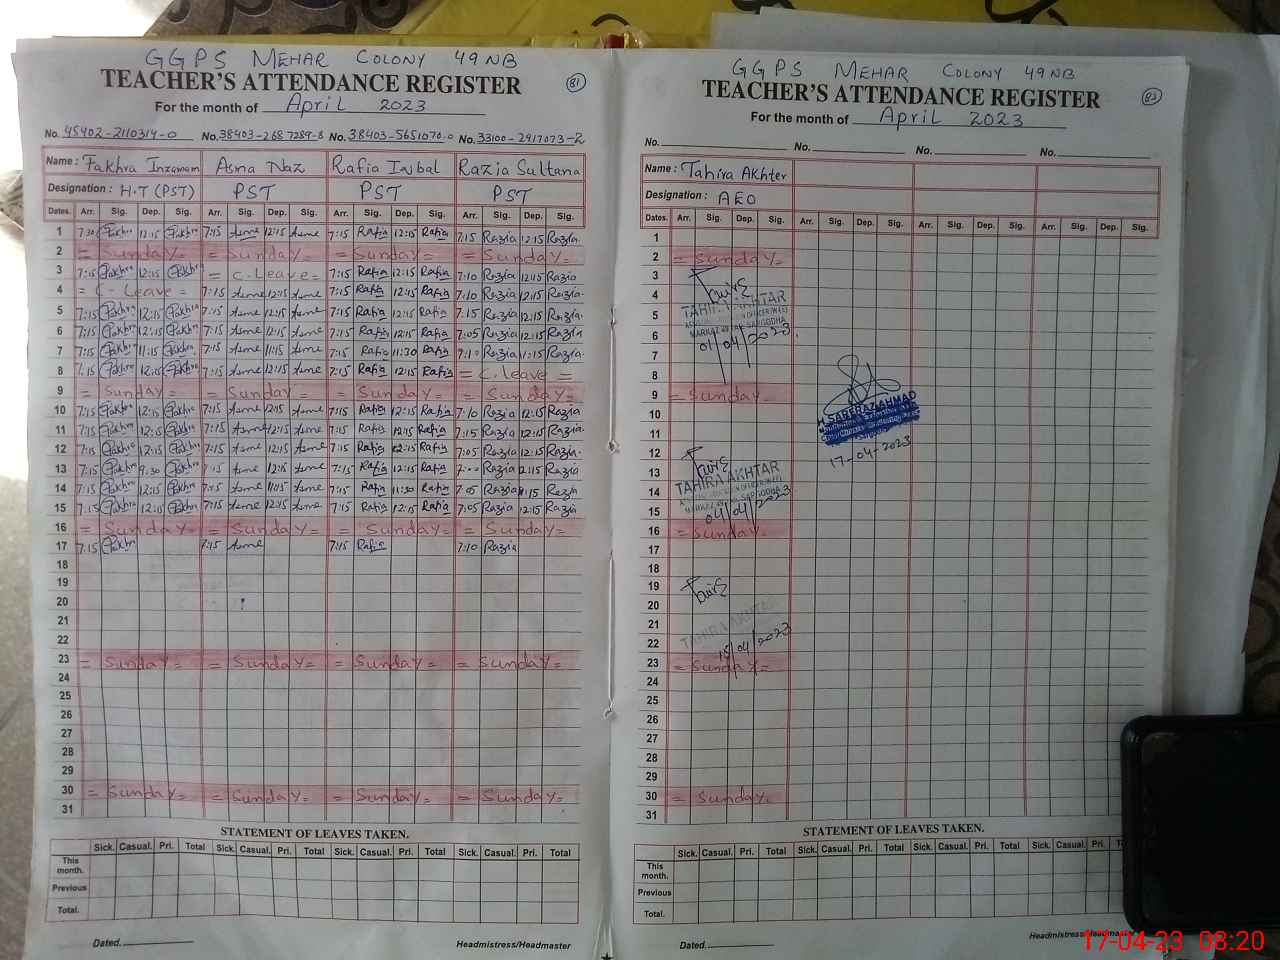 GGPS MEHAR COLONY 49NB
TEACHER'S ATTENDANCE REGISTER 81
For the month of April 2023
No. 45402-2110314-0 No. 38403-2687289-8 No. 38403-5651070-0 No. 33100-2917073-2
Name : Fakhra Inzamam Asma Naz Rafia Iqbal Razia Sultana
Designation : H.T (PST) PST PST PST
Dates. Arr. Sig. Dep. Sig. Arr. Sig. Dep. Sig. Arr. Sig. Dep. Sig. Arr. Sig. Dep. Sig.
1 7:30 Fakhra 12:15 Fakhra 7:15 Asma 12:15 Asma 7:15 Rafia 12:15 Rafia 7:15 Razia 12:15 Razia
2 = Sunday = = Sunday = = Sunday = = Sunday =
3 7:15 Fakhra 12:15 Fakhra = C.Leave = 7:15 Rafia 12:15 Rafia 7:10 Razia 12:15 Razia
4 = C-Leave = 7:15 Asma 12:15 Asma 7:15 Rafia 12:15 Rafia 7:10 Razia 12:15 Razia
5 7:15 Fakhra 12:15 Fakhra 7:15 Asma 12:15 Asma 7:15 Rafia 12:15 Rafia 7:15 Razia 12:15 Razia
6 7:15 Fakhra 12:15 Fakhra 7:15 Asma 12:15 Asma 7:15 Rafia 12:15 Rafia 7:05 Razia 12:15 Razia
7 7:15 Fakhra 11:15 Fakhra 7:15 Asma 11:15 Asma 7:15 Rafia 11:30 Rafia 7:10 Razia 11:15 Razia
8 7:15 Fakhra 12:15 Fakhra 7:15 Asma 12:15 Asma 7:15 Rafia 12:15 Rafia = C.leave =
9 = Sunday = = Sunday = = Sunday = = Sunday =
10 7:15 Fakhra 12:15 Fakhra 7:15 Asma 12:15 Asma 7:15 Rafia 12:15 Rafia 7:10 Razia 12:15 Razia
11 7:15 Fakhra 12:15 Fakhra 7:15 Asma 12:15 Asma 7:15 Rafia 12:15 Rafia 7:15 Razia 12:15 Razia
12 7:15 Fakhra 12:15 Fakhra 7:15 Asma 12:15 Asma 7:15 Rafia 12:15 Rafia 7:05 Razia 12:15 Razia
13 7:15 Fakhra 9:30 Fakhra 7:15 Asma 12:15 Asma 7:15 Rafia 12:15 Rafia 7:00 Razia 12:15 Razia
14 7:15 Fakhra 12:15 Fakhra 7:15 Asma 11:15 Asma 7:15 Rafia 11:30 Rafia 7:05 Razia 11:15 Razia
15 7:15 Fakhra 12:15 Fakhra 7:15 Asma 12:15 Asma 7:15 Rafia 12:15 Rafia 7:05 Razia 12:15 Razia
16 = Sunday = = Sunday = = Sunday = = Sunday =
17 7:15 Fakhra 7:15 Asma 7:15 Rafia 7:10 Razia
18
19
20
21
22
23 = Sunday = = Sunday = = Sunday = = Sunday =
24
25
26
27
28
29
30 = Sunday = = Sunday = = Sunday = = Sunday =
31
STATEMENT OF LEAVES TAKEN.
Sick. Casual. Pri. Total Sick. Casual. Pri. Total Sick. Casual. Pri. Total Sick. Casual. Pri. Total
This month.
Previous
Total.
Dated. Headmistress/Headmaster
GGPS MEHAR COLONY 49NB
TEACHER'S ATTENDANCE REGISTER
For the month of April 2023
No. No. No. No.
Name : Tahira Akhter
Designation : AEO
Dates. Arr. Sig. Dep. Sig. Arr. Sig. Dep. Sig. Arr. Sig. Dep. Sig. Arr. Sig. Dep. Sig.
1
2 = Sunday =
3
4 TAHIRA AKHTAR
5
6 MARKAZ SARGODHA
01/04/2023
7
8
9 = Sunday =
10 SARFRAZ AHMAD
11
12 17-04-2023
13 TAHIRA AKHTAR
14
15 04/04/2023
16 = Sunday =
17
18
19
20
21 TAHIRA AKHTAR
22 15/04/2023
23 = Sunday =
24
25
26
27
28
29
30 = Sunday =
31
STATEMENT OF LEAVES TAKEN.
Sick. Casual. Pri. Total Sick. Casual. Pri. Total Sick. Casual. Pri. Total Sick. Casual. Pri.
This month.
Previous
Total.
Dated. Headmistress/Headmaster
17-04-23 08:20